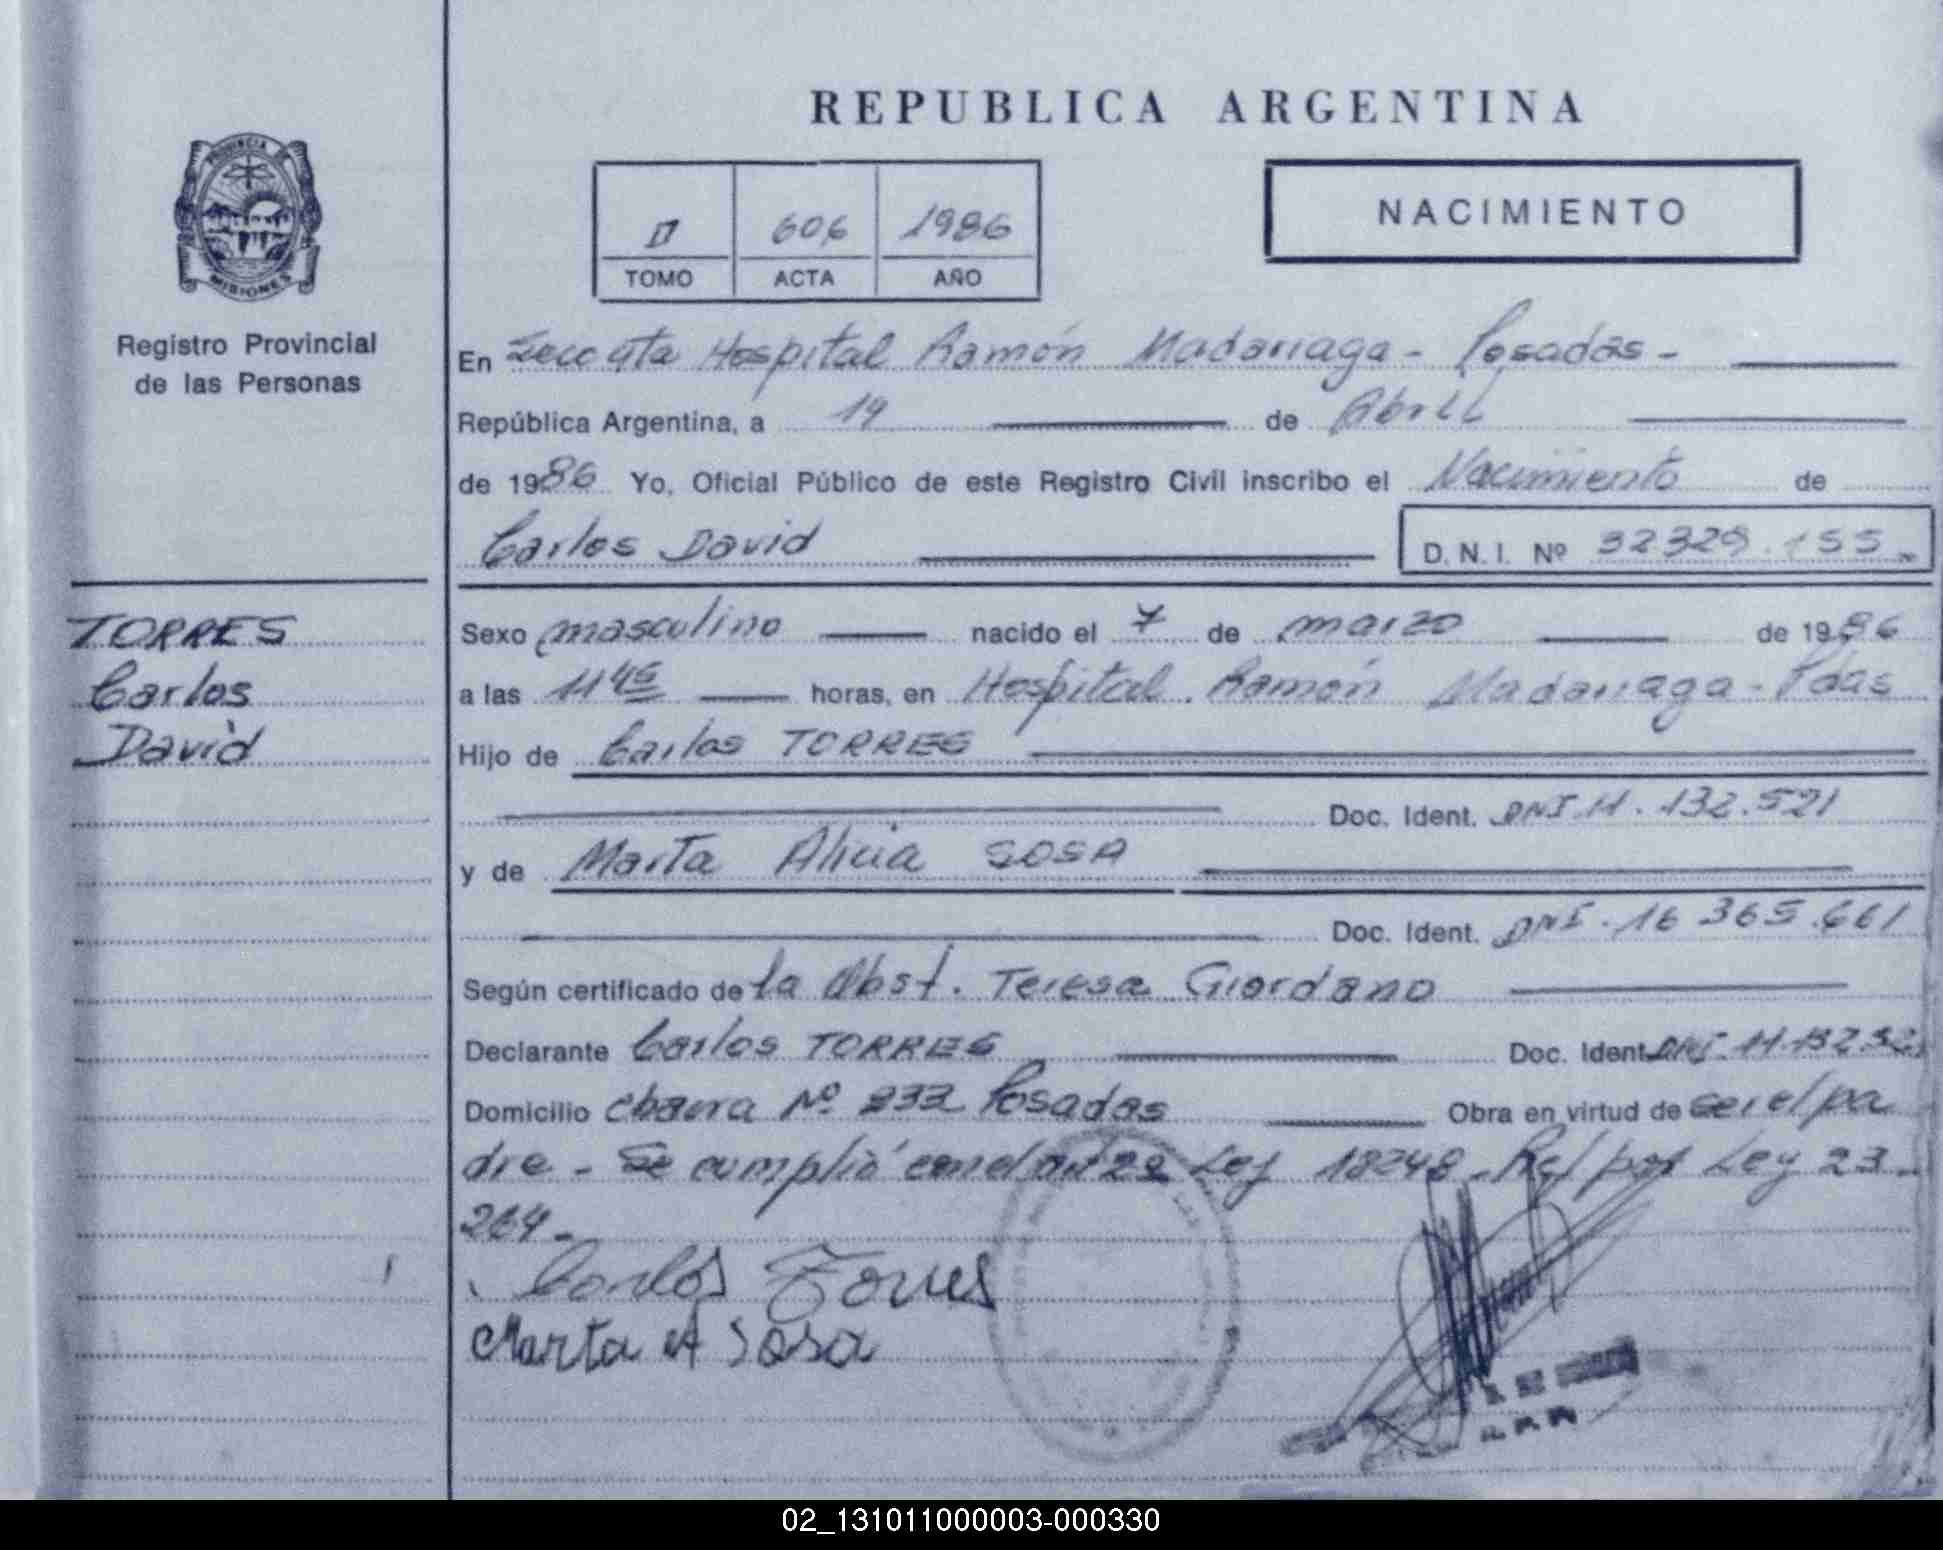 REPUBLICA ARGENTINA
PROVINCIA DE
MISIONES
Registro Provincial
de las Personas
606 1986
TOMO ACTA AÑO
NACIMIENTO
En Hospital Ramón Madariaga - Posadas -
República Argentina, a 19 de Abril
de 1986 Yo, Oficial Público de este Registro Civil inscribo el Nacimiento de
Carlos David D. N. I. Nº 32329.155.
TORRES
Carlos
David
Sexo masculino nacido el 7 de marzo de 1986
a las 11 45 horas, en Hospital. Ramón Madariaga - Pdas
Hijo de Carlos TORRES
Doc. Ident. DNI.11.132.521
y de Marta Alicia SOSA
Doc. Ident. DNI.16 365.661
Según certificado de la Obst. Teresa Giordano
Declarante Carlos TORRES Doc. Ident. DNI.
Domicilio Nº Posadas Obra en virtud de ser el pa
dre - Se cumplió con el art 2º Ley 18248 - Ref por Ley 23.
264 -
Carlos Torres
Marta A Sosa
02_131011000003-000330